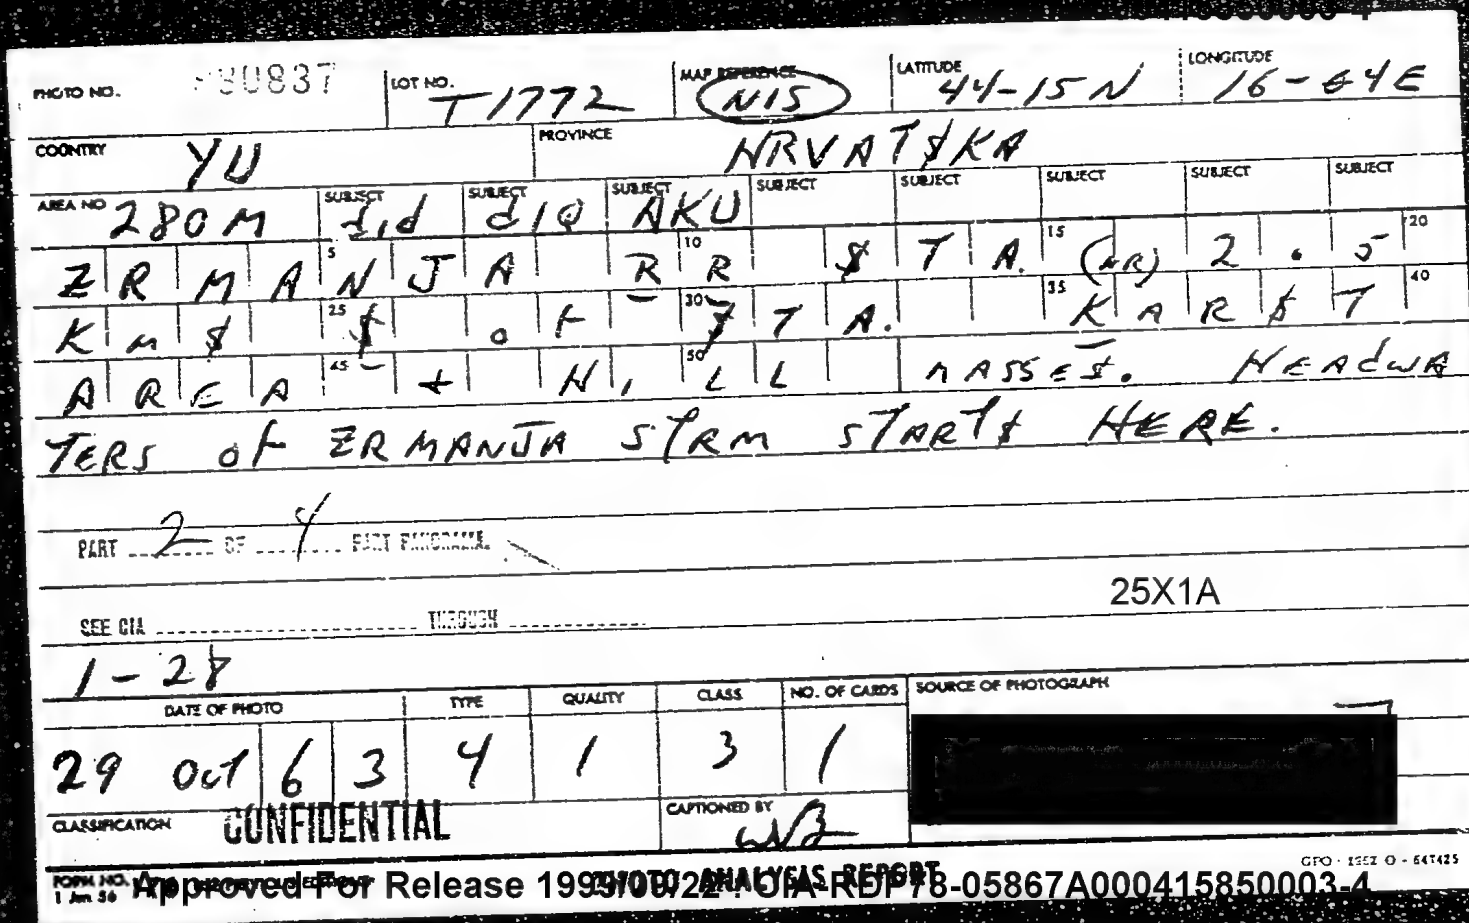 PHOTO NO. 980837 LOT NO. T1772 MAP REFERENCE NIS LATITUDE 44-15N LONGITUDE 16-04E
COUNTRY YU PROVINCE HRVATSKA
AREA NO 280M SUBJECT did SUBJECT d1Q SUBJECT AKU SUBJECT SUBJECT SUBJECT SUBJECT SUBJECT
5 10 15 20
ZRMANJA RR STA. (NR) 2.5
25 30 35 40
KMS S OF STA. KARST
45 50
AREA + HILL MASSES. HEADWA
TERS OF ZRMANJA STRM STARTS HERE.
PART 2 OF 4 PART PANORAMA.
25X1A
SEE CIA THROUGH
1-28
DATE OF PHOTO TYPE QUALITY CLASS NO. OF CARDS SOURCE OF PHOTOGRAPH
29 Oct 63 4 1 3 1
CLASSIFICATION CONFIDENTIAL CAPTIONED BY
FORM NO. PHOTO ANALYSIS REPORT GPO
1 Jan 56
Approved For Release 1999/09/22 : CIA-RDP78-05867A000415850003-4